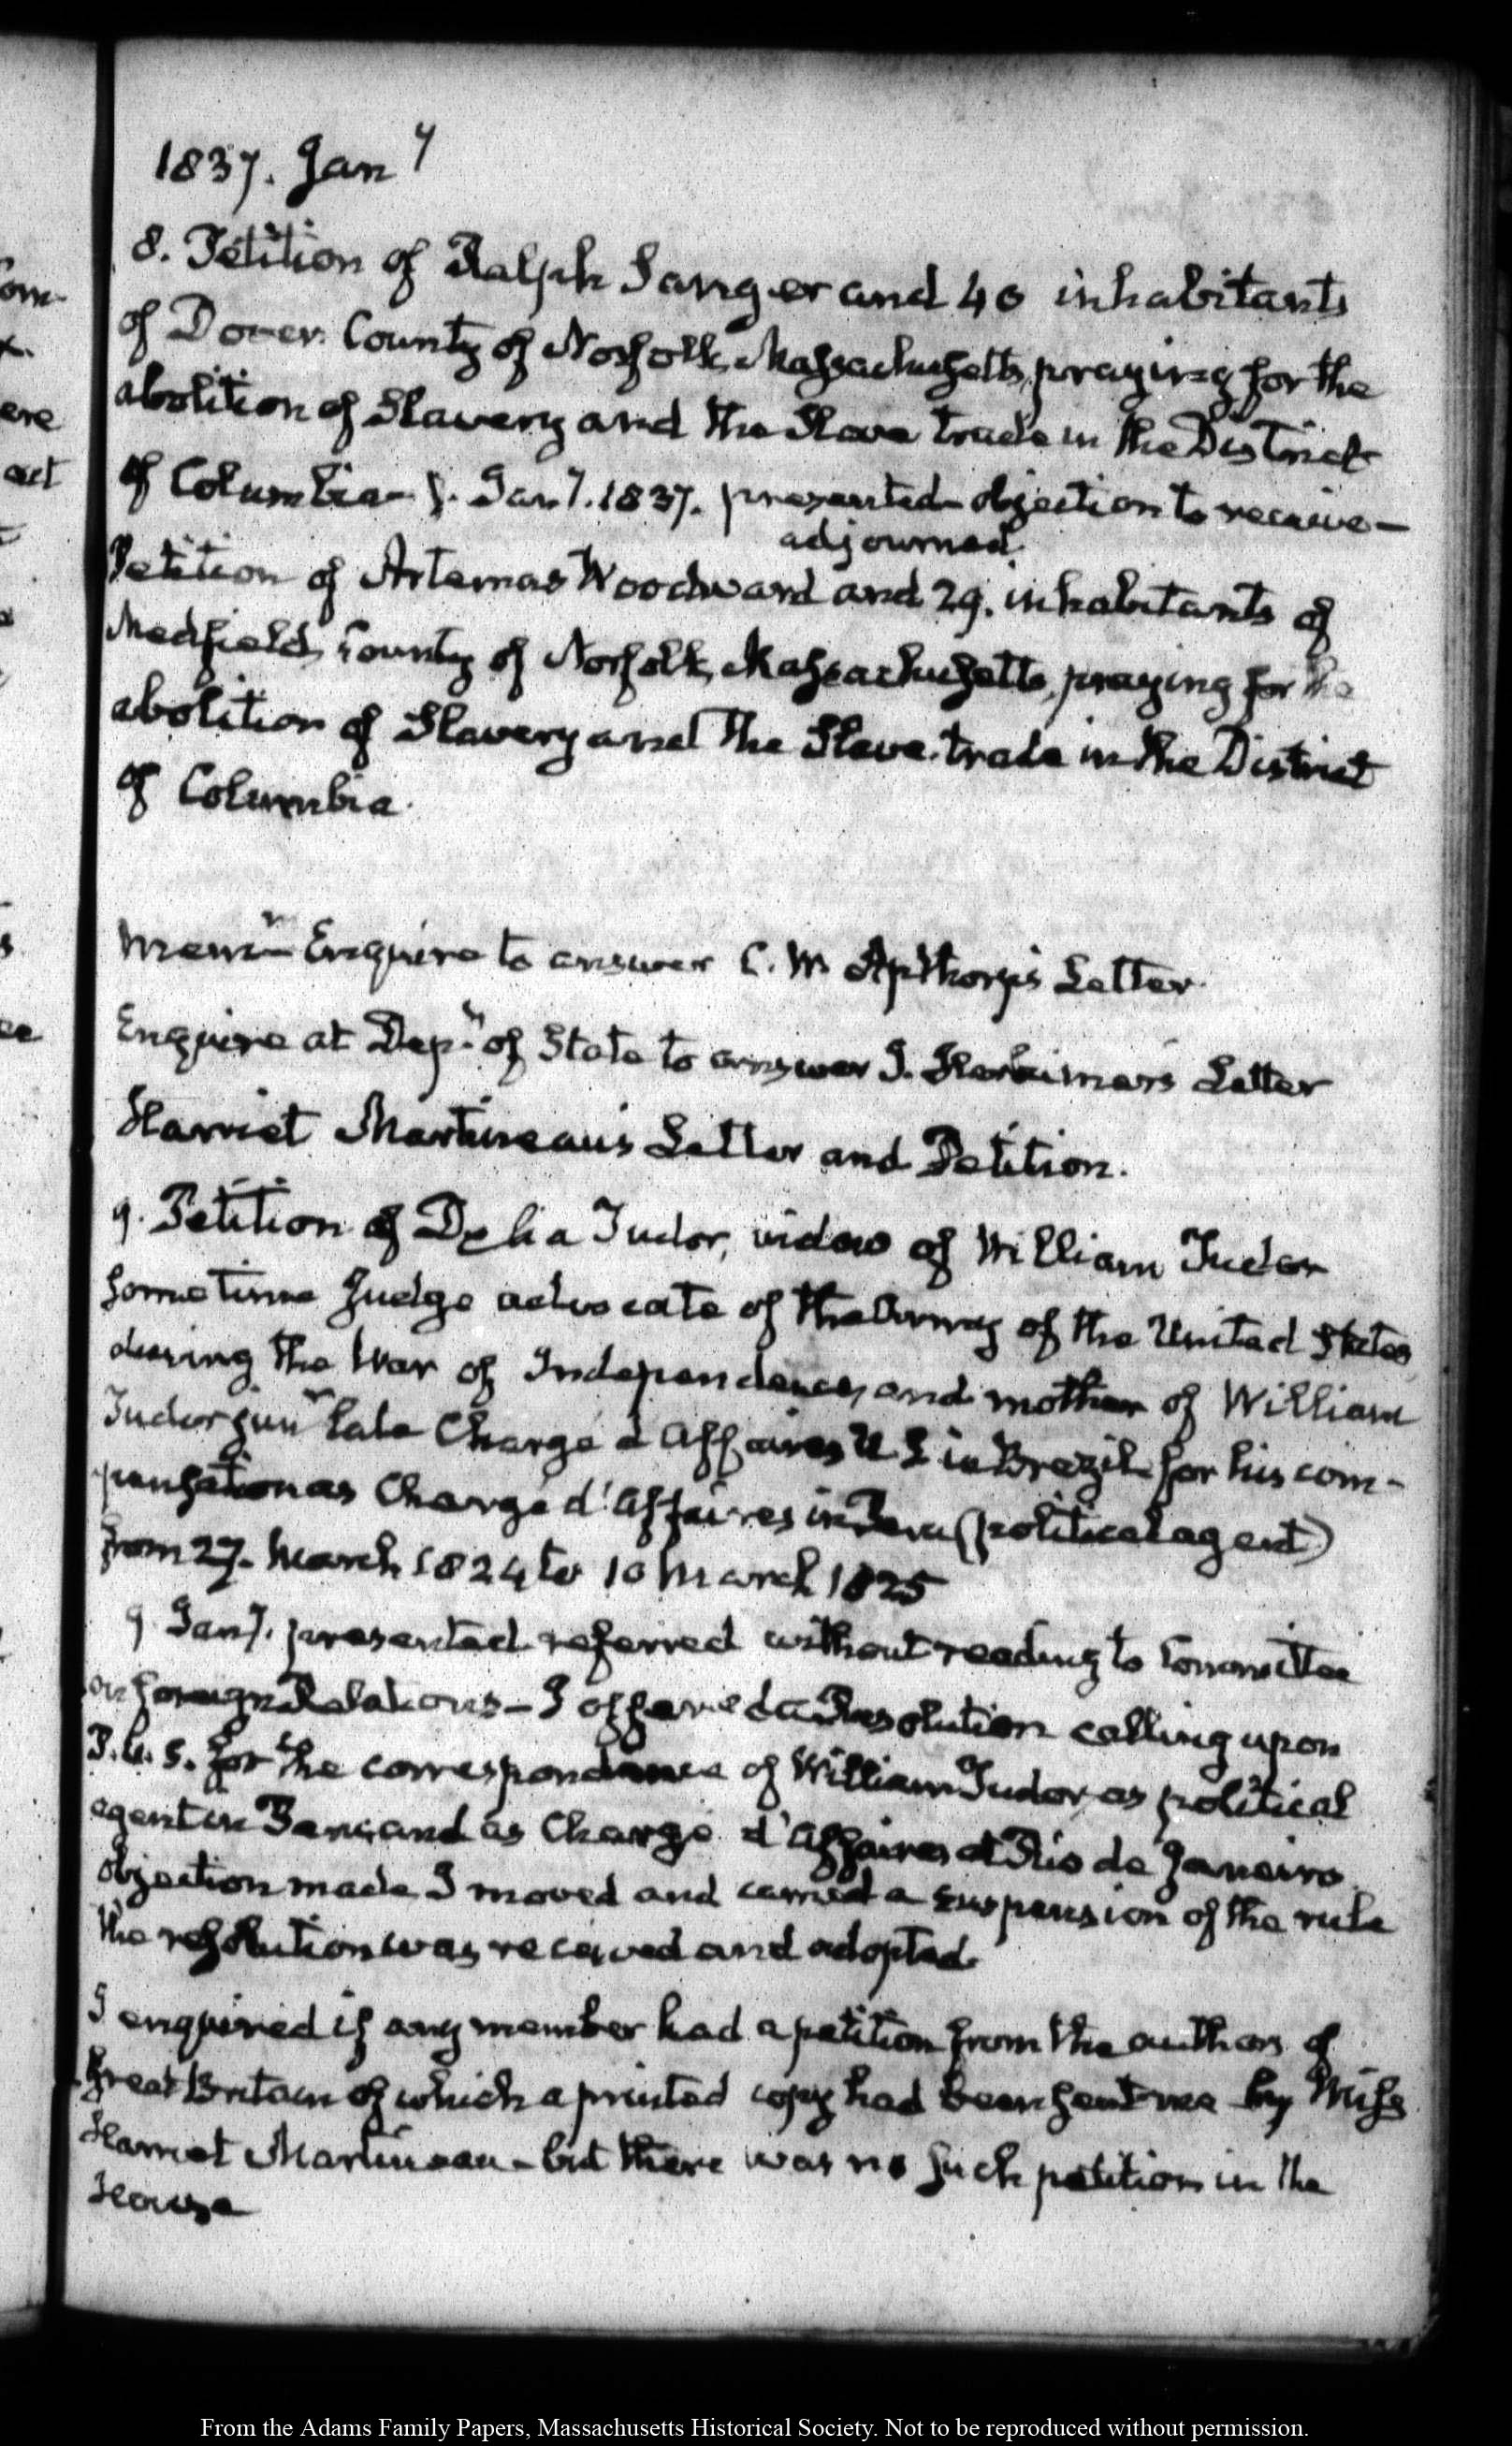 1837. Jan y
8. Petition of Ralph Sanger and 40 inhabitants
of Dover. County of Norfolk, Massachusetts, praying for the
abolition of Slavery and the Slave trade in the District
of Columbia— 9. Jany. 1837. presented—objection to receive—
adjourned.
Petition of Artemas Woodward and 29. inhabitants of
Medfield, County of Norfolk, Massachusetts, praying for the
abolition of Slavery and the Slave-trade in the District
of Columbia.
Mem.m— Enquire to answer C. W. Apthorp's Letter.
Enquire at Dep.t of State to answer J. Herkimer's Letter
Harriet Martineau's Letter and Petition.
9. Petition of Delia Tudor, widow of William Tudor
sometime Judge advocate of the Army of the United States
during the War of Independence, and mother of William
Tudor junr late Chargé d'Affaires U.S. in Brazil—for his com-
pensation as Chargé d'Affaires in Peru (political agent)
from 27. March 1824 to 10 March 1825
9 Jany. presented referred without reading to Committee
on foreign Relations—I offered a Resolution calling upon
P. U. S. for the correspondence of William Tudor, as political
agent in Peru, and as Chargé d'Affaires at Rio de Janeiro.
objection made I moved and carried a suspension of the rule
the resolution was received and adopted.
I enquired if any member had a petition from the authors of
Great Britain of which a printed copy had been sent me by Miss
Harriet Martineau—but there was no such petition in the
House
From the Adams Family Papers, Massachusetts Historical Society. Not to be reproduced without permission.